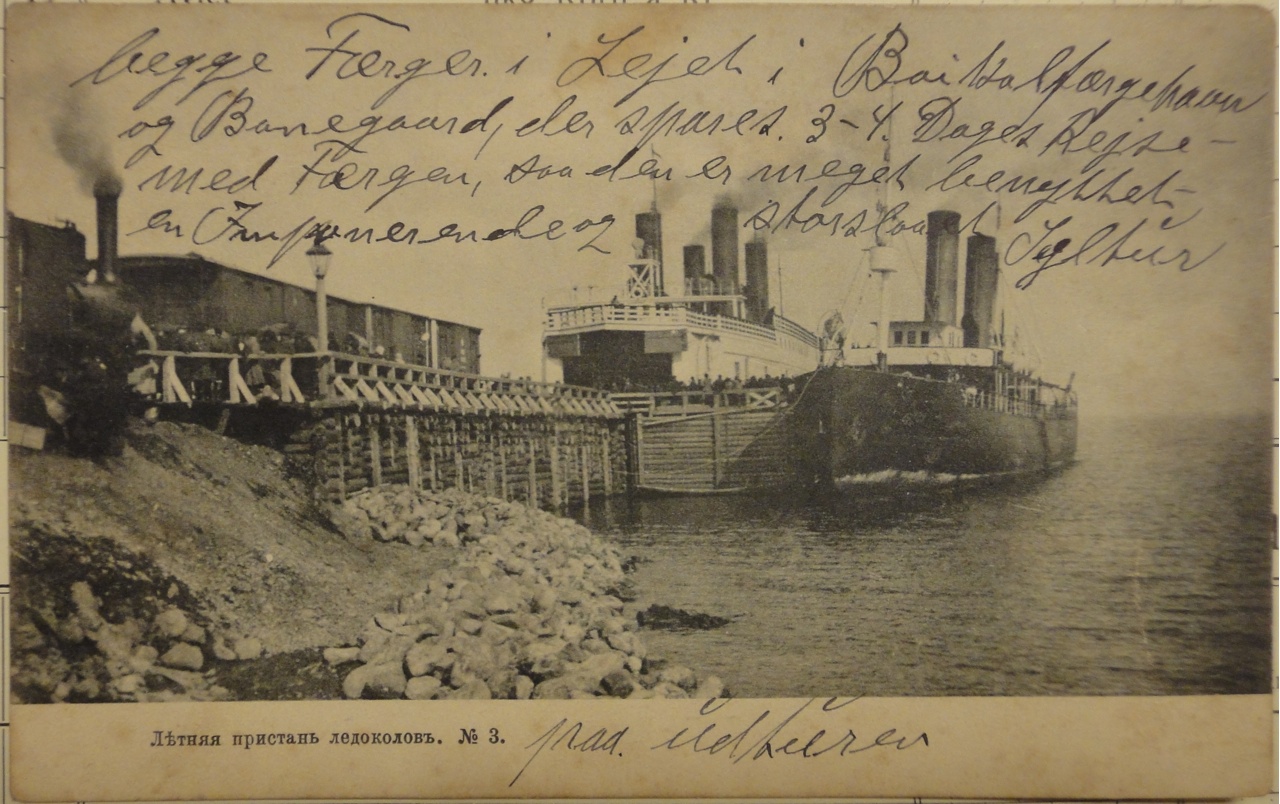 begge Færger. i Lejet i Baikalfærgehavn
og Banegaard, der spares. 3-4. Dages Rejse-
med Færgen, saa den er meget benyttet-
en Imponerende og storslaaet
Лѣтняя пристань ледоколовъ. № 3.
paa. Udturen